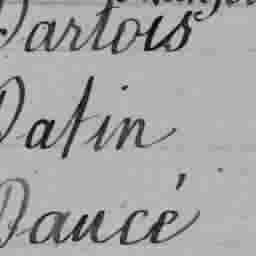 Dartois
Datin
Daucé